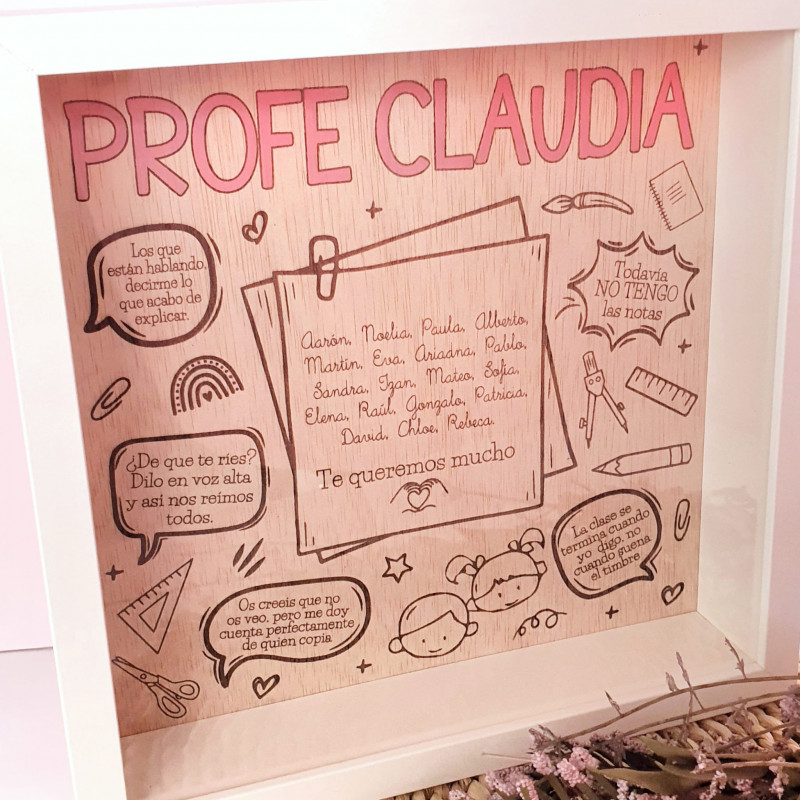 PROFE CLAUDIA
Los que
están hablando,
decirme lo
que acabo de
explicar.
Todavía
NO TENGO
las notas
Aarón, Noelia, Paula, Alberto,
Martín, Eva, Ariadna, Pablo,
Sandra, Izan, Mateo, Sofia,
Elena, Raúl, Gonzalo, Patricia,
David, Chloe, Rebeca.
Te queremos mucho
¿De que te ries?
Dilo en voz alta
y asi nos reímos
todos.
La clase se
termina cuando
yo digo, no
cuando suena
el timbre
Os creeis que no
os veo, pero me doy
cuenta perfectamente
de quien copia